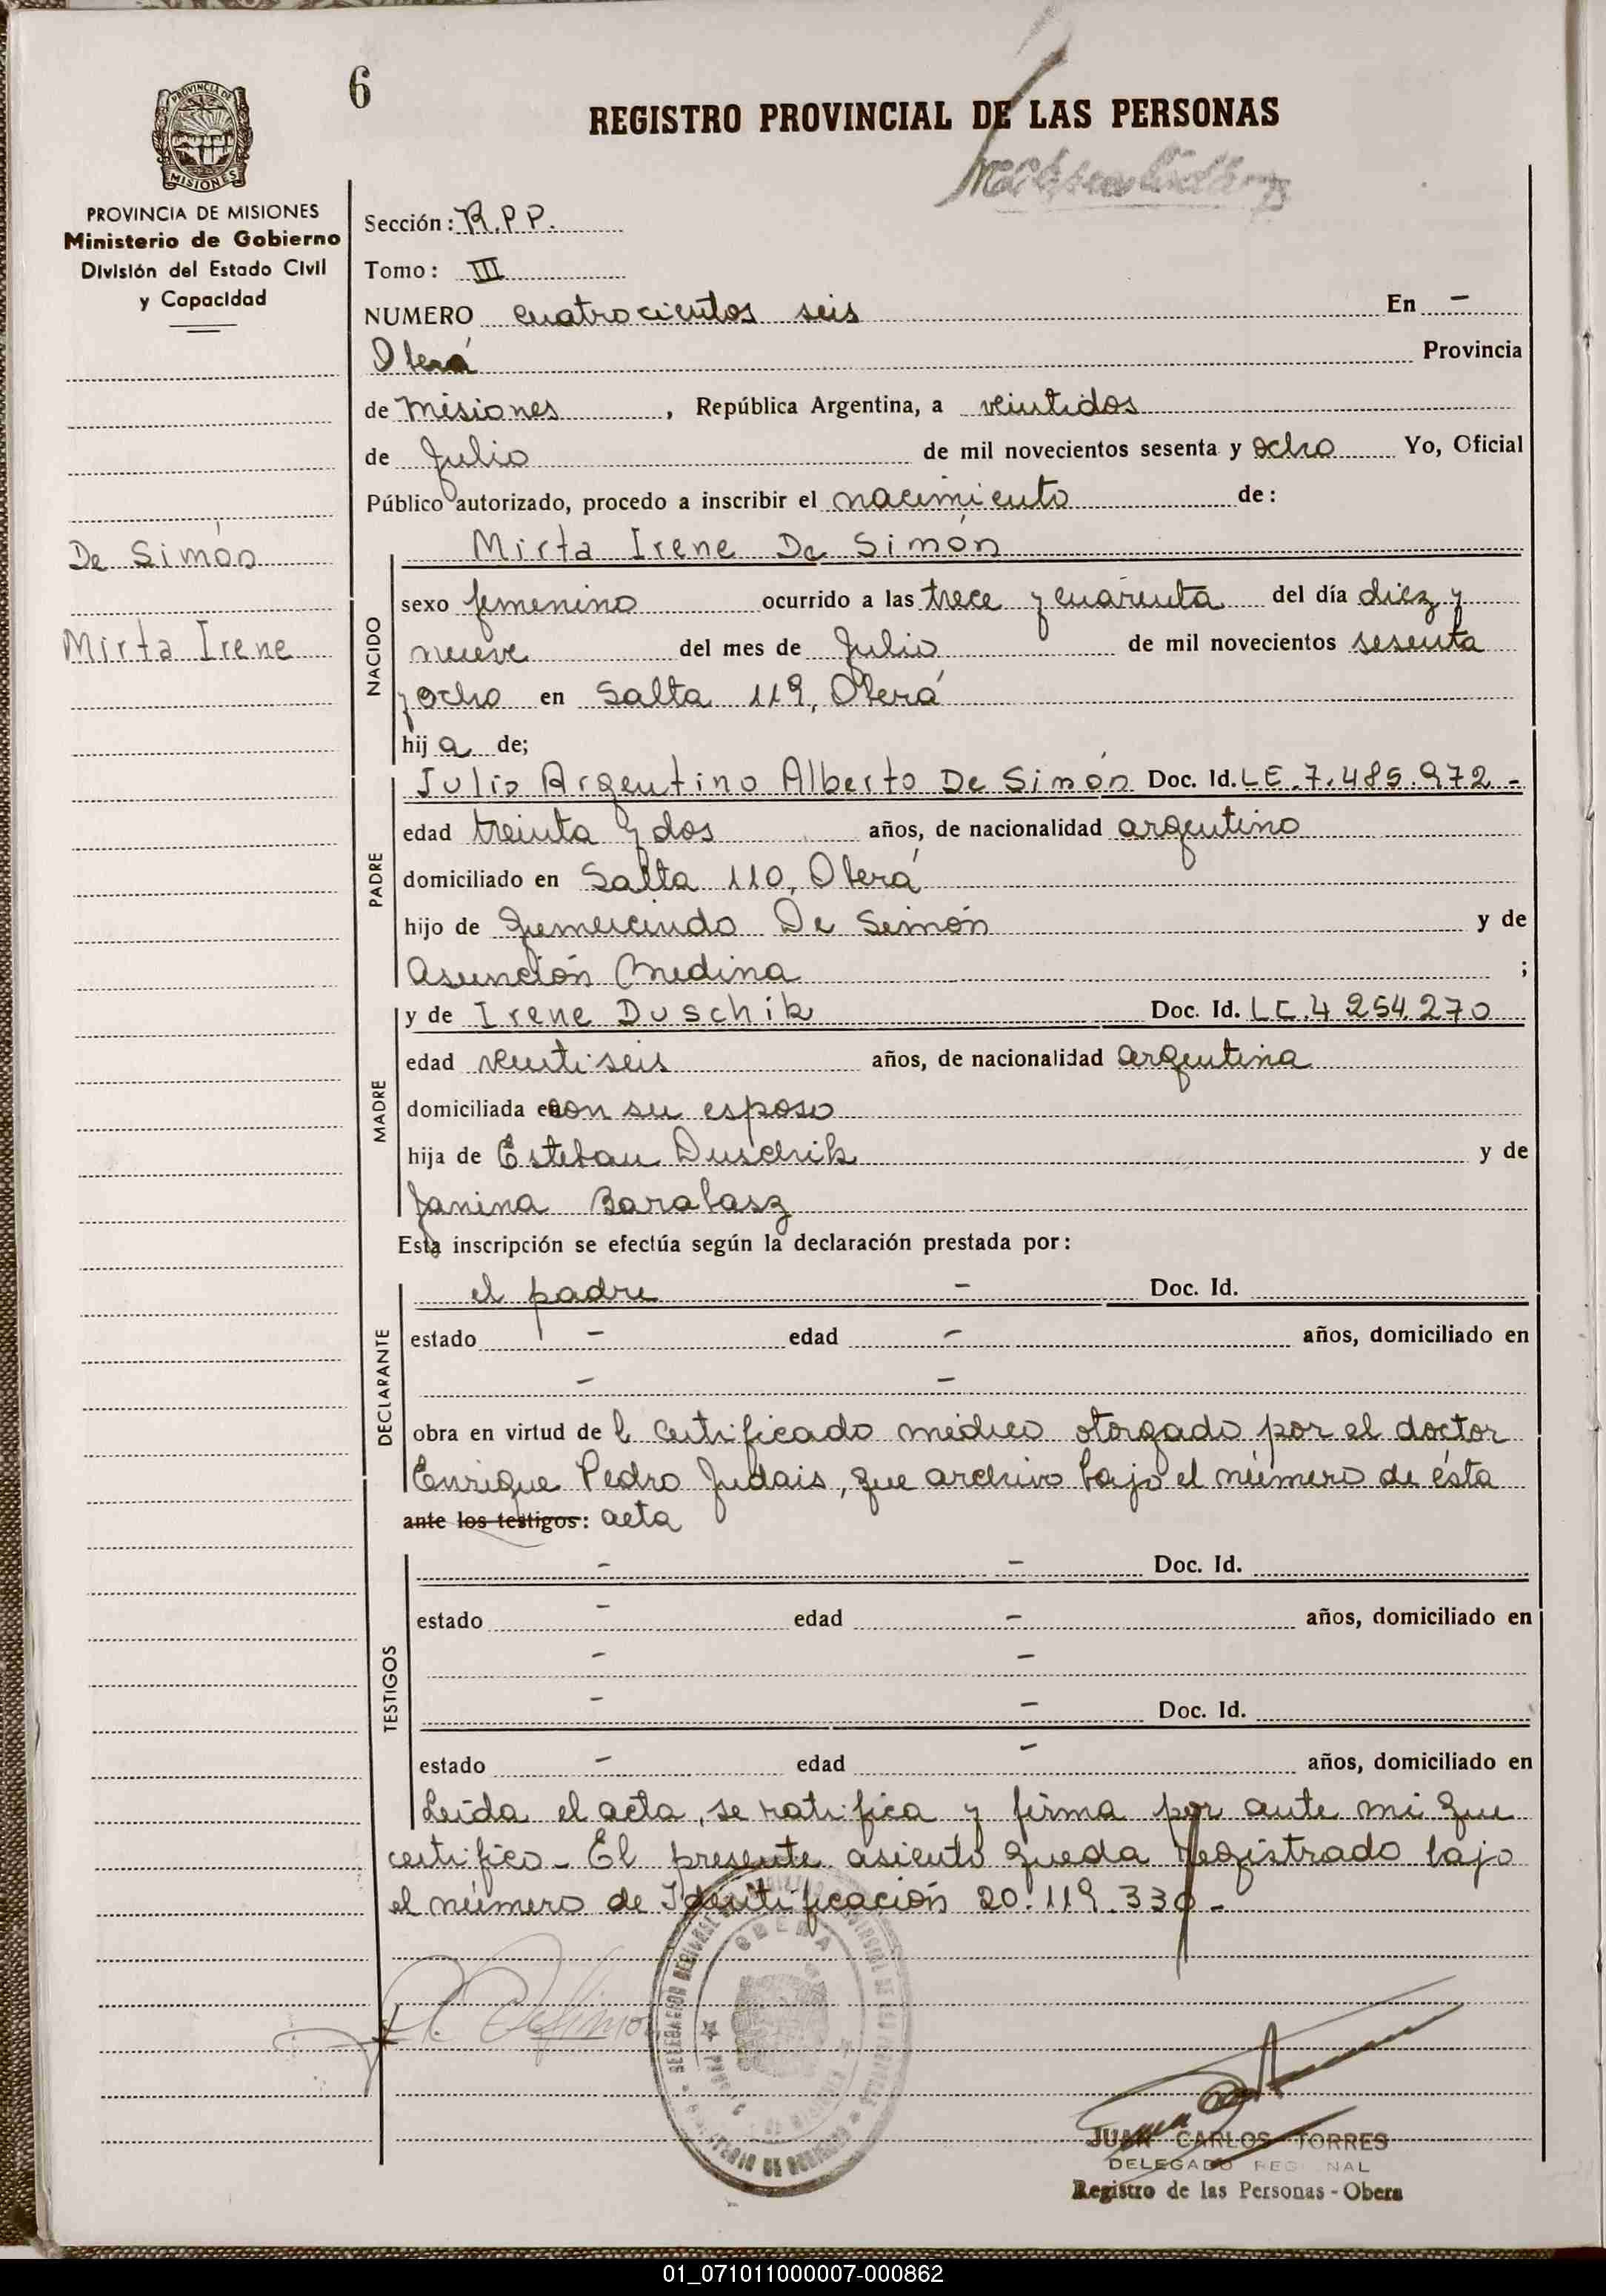 6
REGISTRO PROVINCIAL DE LAS PERSONAS
PROVINCIA DE MISIONES
Ministerio de Gobierno
División del Estado Civil
y Capacidad
Sección: R.P.P.
Tomo: III
NUMERO cuatrocientos seis En -
Oberá Provincia
de Misiones, República Argentina, a veintidos
de Julio de mil novecientos sesenta y ocho Yo, Oficial
Público autorizado, procedo a inscribir el nacimiento de:
De Simón
Mirta Irene
NACIDO
Mirta Irene De Simón
sexo femenino ocurrido a las trece y cuarenta del día diez y
nueve del mes de Julio de mil novecientos sesenta
y ocho en Salta 119, Oberá
hija de;
PADRE
Julio Argentino Alberto De Simón Doc. Id. L E. 7.485.972 -
edad treinta y dos años, de nacionalidad argentino
domiciliado en Salta 110, Oberá
hijo de Gumercindo De Simón y de
Asunción Medina ;
MADRE
y de Irene Duschik Doc. Id. L C. 4 254.270
edad veintiseis años, de nacionalidad argentina
domiciliada en con su esposo
hija de Esteban Duschik y de
Janina Barabasz
Esta inscripción se efectúa según la declaración prestada por:
DECLARANTE
el padre - Doc. Id.
estado - edad - años, domiciliado en
- -
obra en virtud del certificado médico otorgado por el doctor
Enrique Pedro Judais, que archivo bajo el número de ésta
ante los testigos: acta
TESTIGOS
- - Doc. Id.
estado - edad - años, domiciliado en
- -
- - Doc. Id.
estado - edad - años, domiciliado en
Leída el acta, se ratifica y firma por ante mi que
certifico - El presente asiento queda registrado bajo
el número de Identificación 20.119.330 -
OBERA
JUAN CARLOS TORRES
DELEGADO REGIONAL
Registro de las Personas - Obera
01_071011000007-000862